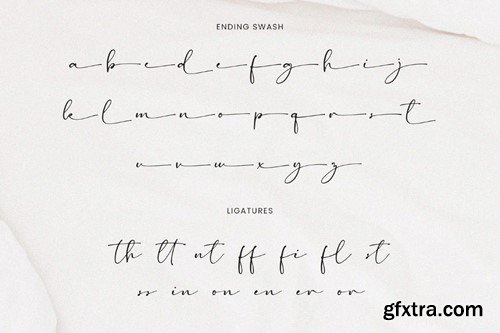 ENDING SWASH
a b c d e f g h i j
k l m n o p q r s t
u v w x y z
LIGATURES
th tt nt ff fi fl st
ss in on en er or
gfxtra.com